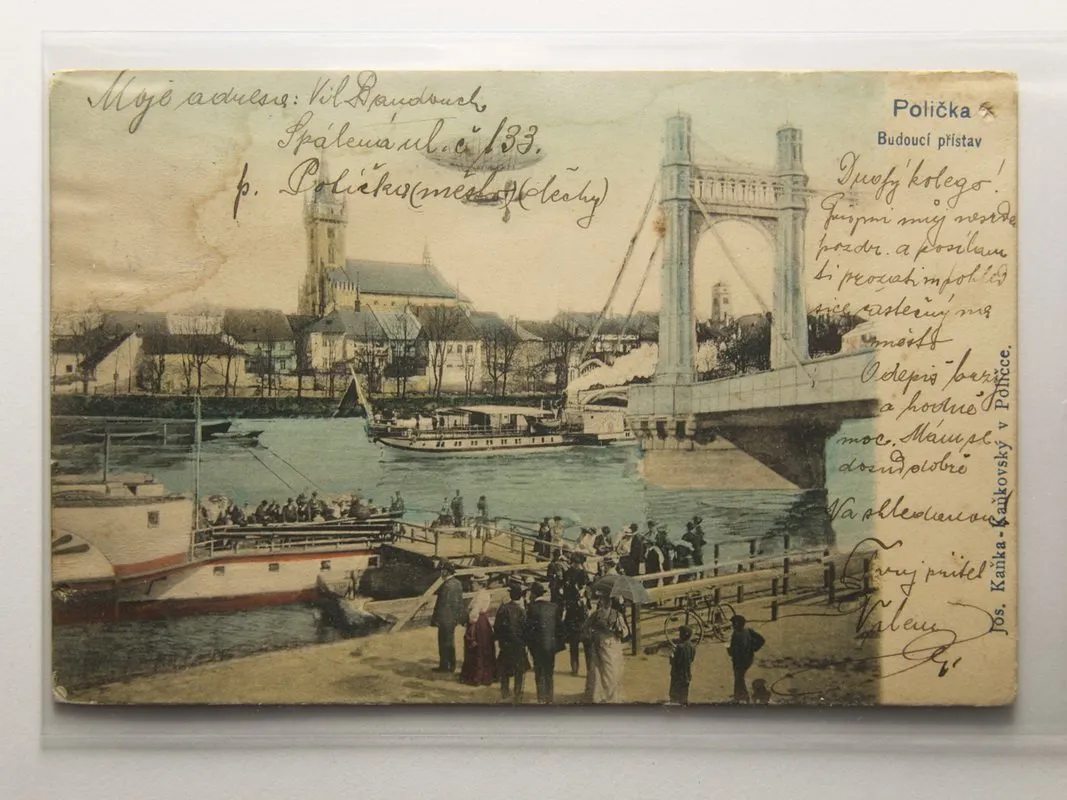 Moje adresa: Vil Bandouch
Spálená ul. č 133.
p. Polička (město) (Čechy)
Polička
Budoucí přístav
Drahý kolego!
můj
pozdr. a posílám
ti prozatim pohled
sice částečný na
město
Odepiš brzy
a hodně
moc. Mám se
dosud dobře
Na shledanou
Tvůj přítel
Vilém
Jos. Kaňka-Kaňkovský v Poličce.